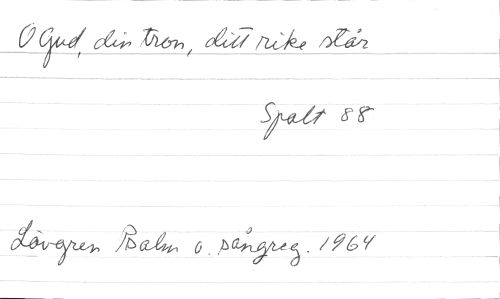 O Gud, din tron, ditt rike står
Spalt 88
Lövgren Psalm o. sångreg. 1964